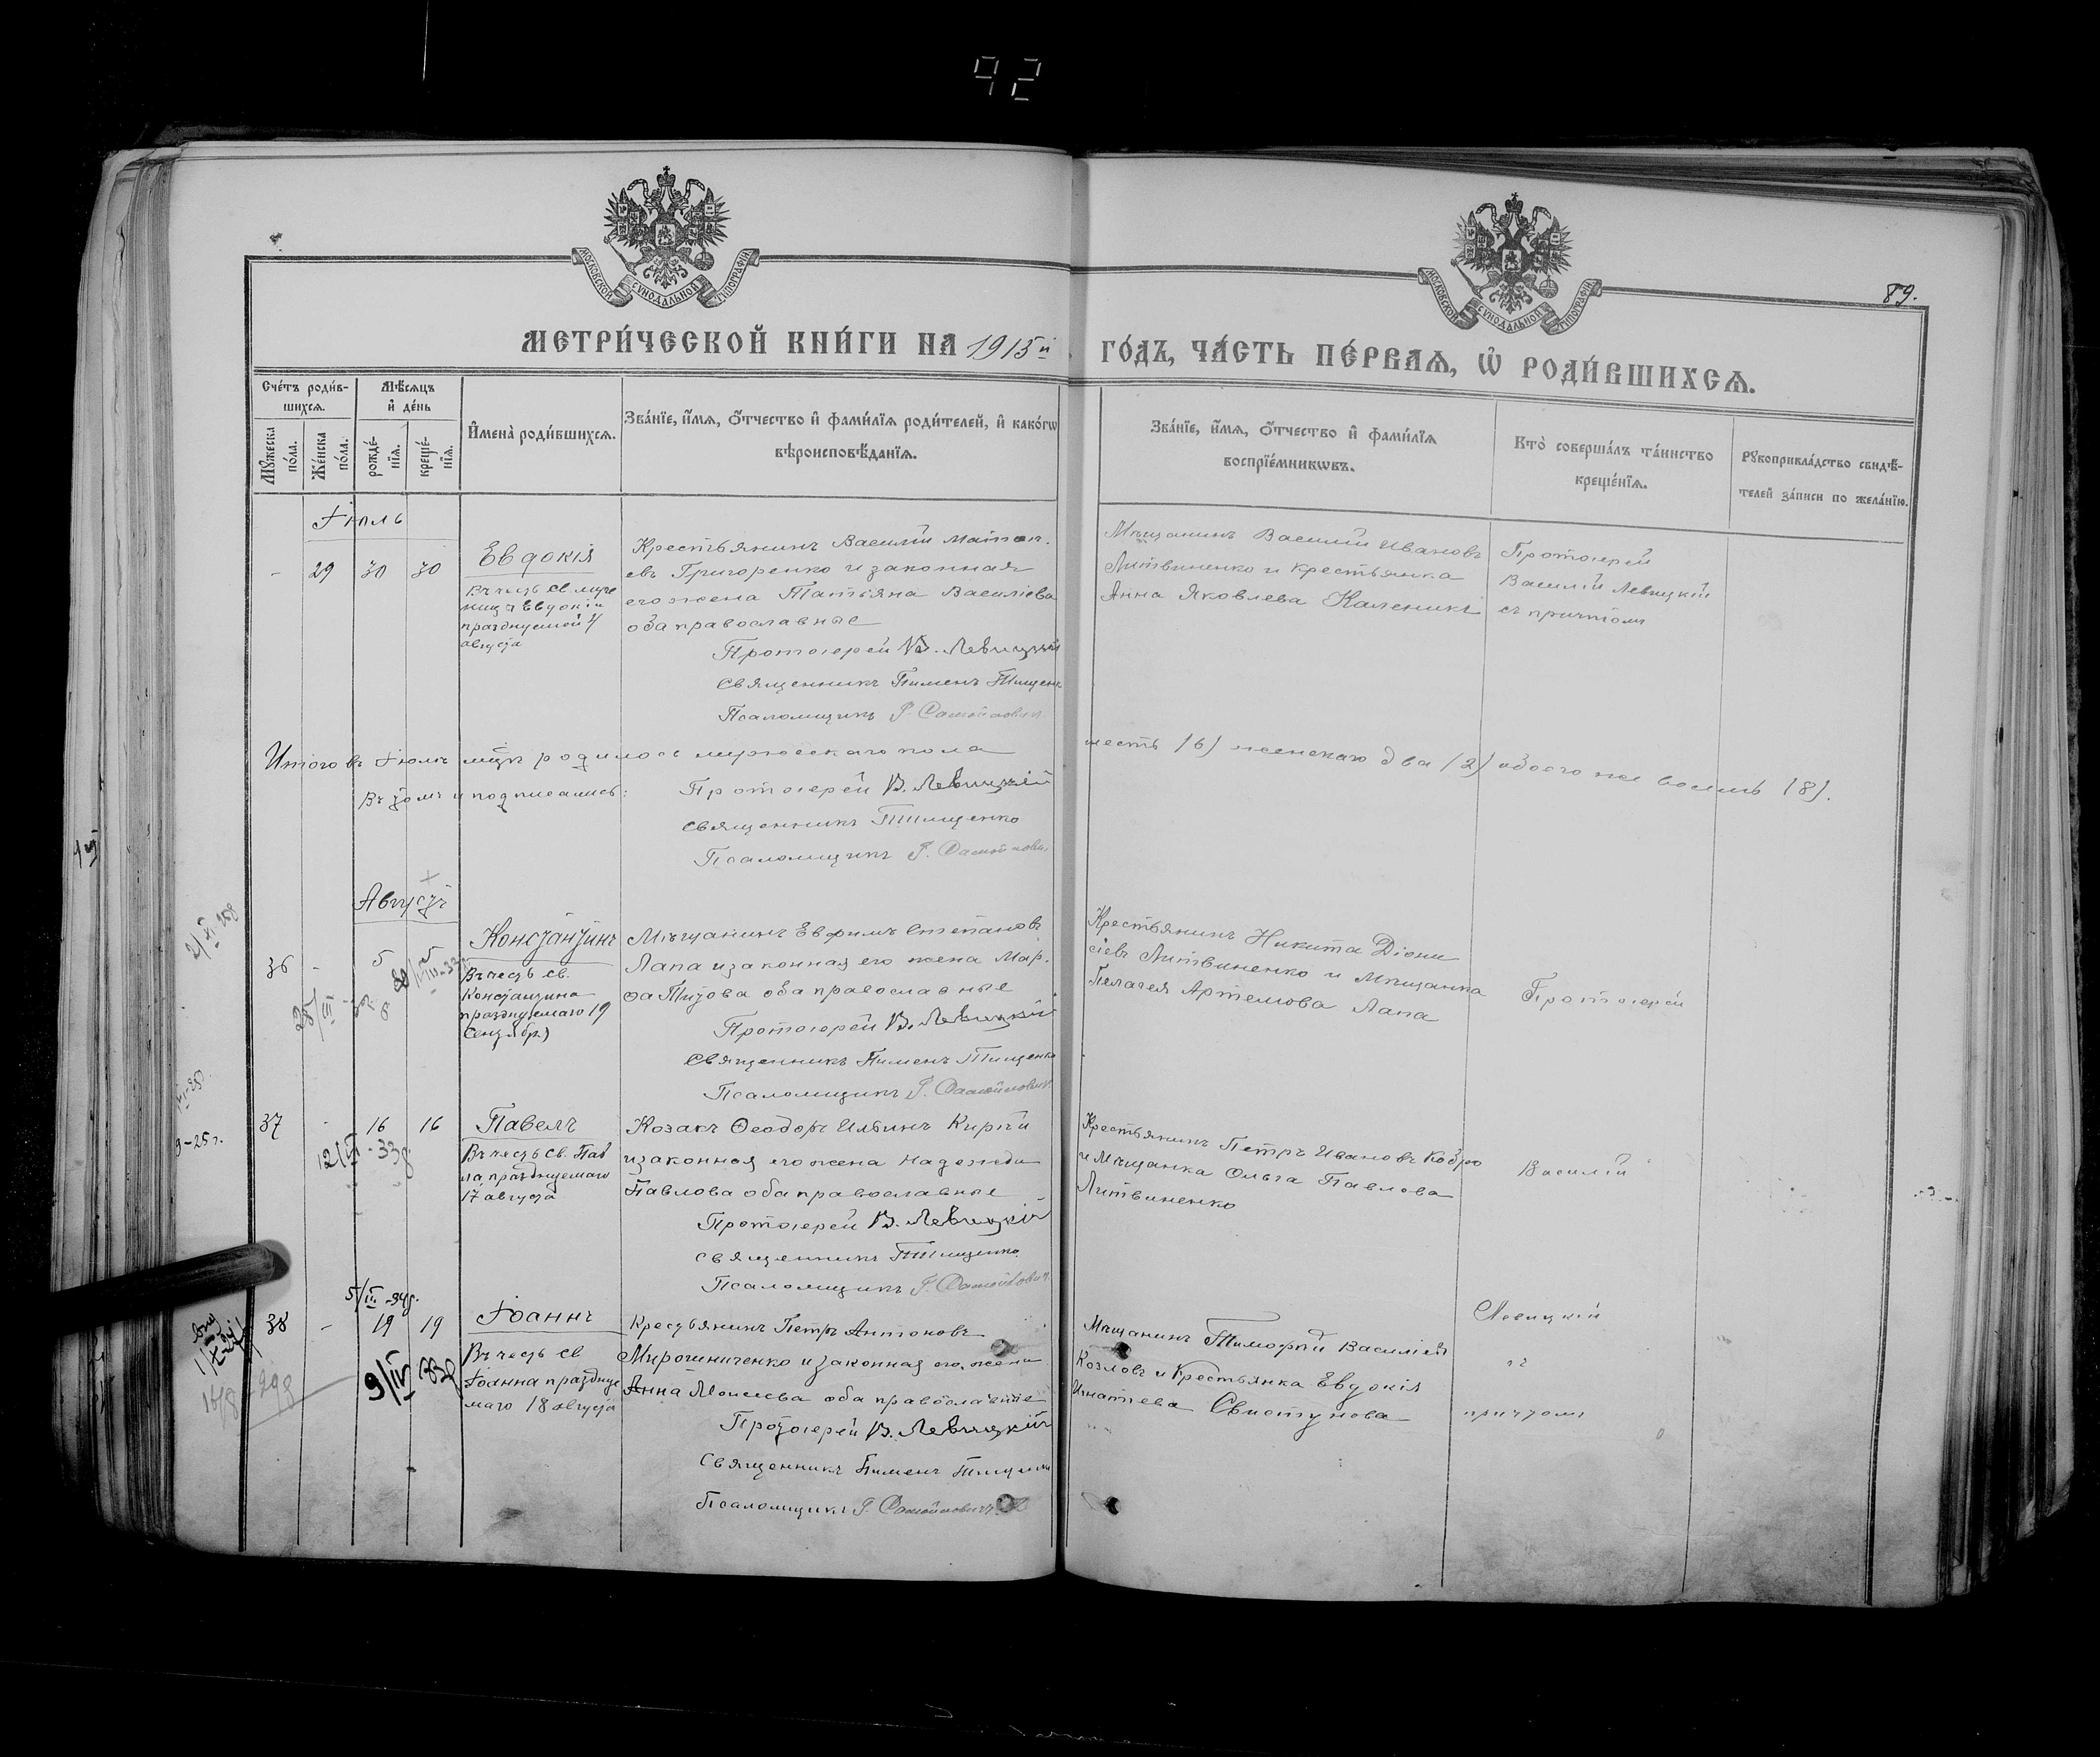 92
МОСКОВСКОЙ СѴНОДАЛЬНОЙ ТИПОГРАФІИ
МОСКОВСКОЙ СѴНОДАЛЬНОЙ ТИПОГРАФІИ
89.
МЕТРИ́ЧЕСКОЙ КНИ́ГИ НА 1915й ГО́ДЪ, ЧА́СТЬ ПЕ́РВАѦ, Ѡ҆ РОДИ́ВШИХСѦ.
Сче́тъ роди́в-
шихсѧ.
Мѣ́сѧцъ
и҆ де́нь
Мꙋ́жеска
по́ла.
Же́нска
по́ла.
рожде́-
нїѧ.
креще́-
нїѧ.
И҆мена̀ роди́вшихсѧ.
Зва́нїе, и҆́мѧ, ѻ҆́тчество и҆ фами́лїѧ роди́телей, и҆ како́гѡ
вѣроисповѣ́данїѧ.
Зва́нїе, и҆́мѧ, ѻ҆́тчество и҆ фами́лїѧ
воспрїе́мникѡвъ.
Кто̀ соверша́лъ та́инство
креще́нїѧ.
Рꙋкоприкла́дство свидѣ́-
телей за́писи по жела́нїю.
Іюль
- 29 30 30
Евдокія
Въ честь св. муче
ницы Евдокіи
празднуемой 4
августа
Крестьянинъ Василій
евъ Григоренко и законная
его жена Татьяна Василіева
оба православные
Протоіерей В. Левицкій
Священникъ Пименъ Тищенко
Псаломщикъ Г. Самойлович
Мѣщанинъ Василій Ивановъ
Литвиненко и крестьянка
Анна Яковлева Каленикъ
Протоіерей
Василій Левицкій
съ причтомъ
Итого въ Іюлѣ мцѣ родилось мужескаго пола шесть (6) женскаго два (2) обоего же восемь (8).
Въ томъ и подписались: Протоіерей В. Левицкій
Священникъ Тищенко
Псаломщикъ Г. Самойлович
Августъ
36 - 5
Константинъ
Въ честь св.
Константина
празднуемаго 19
Сентября
Мѣщанинъ Евфимъ Степановъ
Лапа и законная его жена Мар-
фа Титова оба православные
Протоіерей В. Левицкій
Священникъ Пименъ Тищенко
Псаломщикъ Г. Самойлович
Крестьянинъ Никита Діони
сіевъ Литвиненко и Мѣщанка
Пелагея Артемова Лапа
Протоіерей
37 - 16 16
12/III-33г.
Павелъ
Въ честь Св. Пав
ла, празднуемаго
17 августа
Козакъ Ѳеодоръ Ильинъ Кирѣй
и законная его жена Надежда
Павлова оба православные
Протоіерей В. Левицкій
Священникъ Тищенко
Псаломщикъ Г. Самойлович
Крестьянинъ Петръ Ивановъ Кобро
и Мѣщанка Ольга Павлова
Литвиненко
Василій
38 - 19 19
9/IV 33г
Іоаннъ
Въ честь св
Іоанна праздну
маго 18 августа
Крестьянинъ Петръ Антоновъ
Мирошниченко и законная его жена
Анна Моисеева оба православные
Протоіерей В. Левицкій
Священникъ Пименъ Тищенко
Псаломщикъ Г. Самойлович
Мѣщанинъ Тимофей Василіев
Козловъ и Крестьянка Евдокія
Игнатьева Свистунова
Левицкій
съ
причтомъ